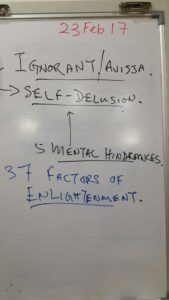 23 Feb 17
- IGNORANT/AVISSA.
→ SELF-DELUSION.
5 MENTAL HINDRANCES.
37 FACTORS OF
ENLIGHTENMENT.